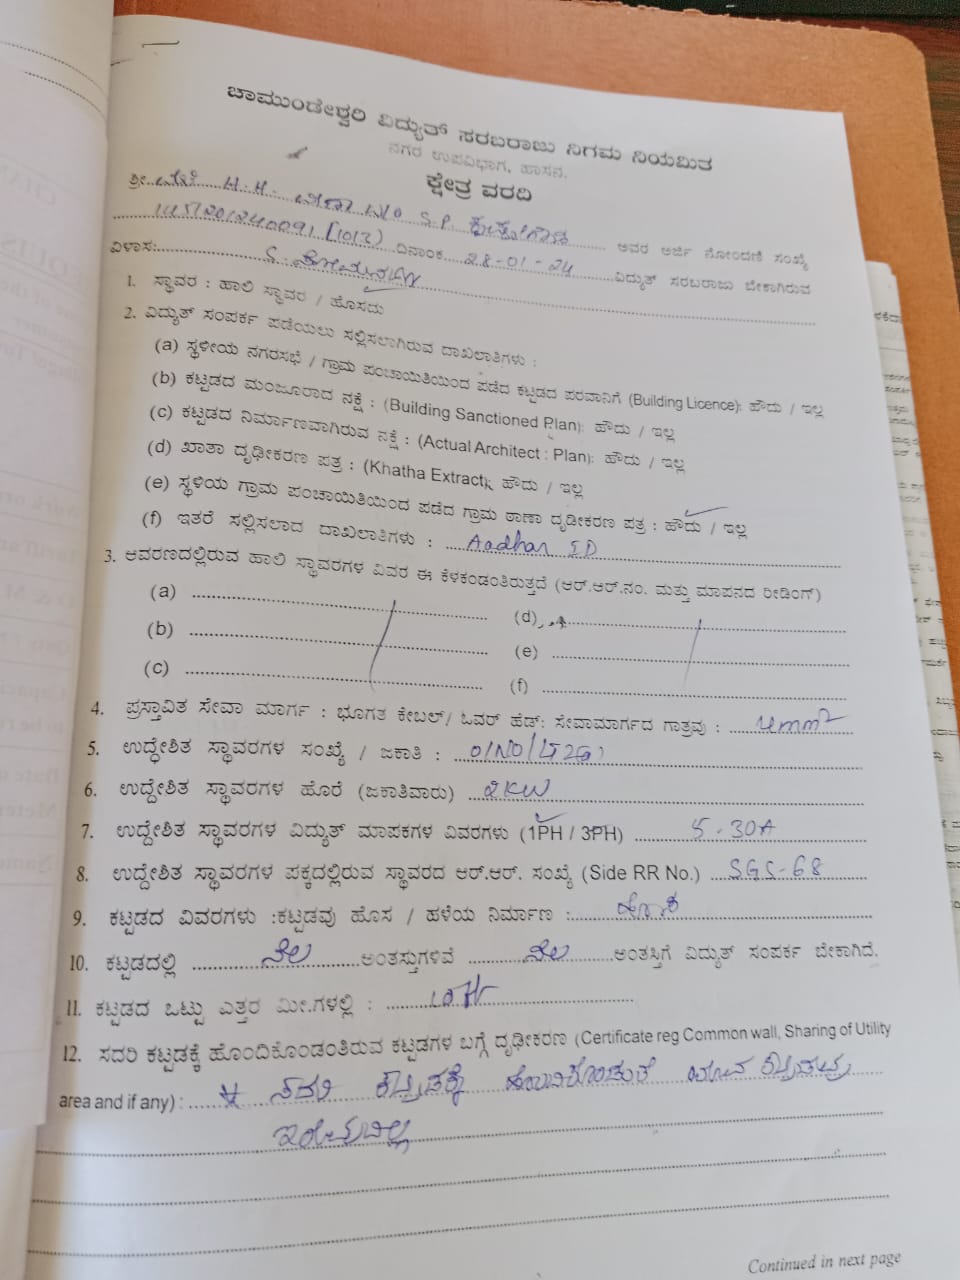 ಚಾಮುಂಡೇಶ್ವರಿ ವಿದ್ಯುತ್ ಸರಬರಾಜು ನಿಗಮ ನಿಯಮಿತ
ನಗರ ಉಪವಿಭಾಗ, ಹಾಸನ.
ಕ್ಷೇತ್ರ ವರದಿ
ಶ್ರೀ H.H. W/o S.P. ಅವರ ಅರ್ಜಿ ನೋಂದಣಿ ಸಂಖ್ಯೆ
ದಿನಾಂಕ 28-01-24 ವಿದ್ಯುತ್ ಸರಬರಾಜು ಬೇಕಾಗಿರುವ
ವಿಳಾಸ:
1. ಸ್ಥಾವರ : ಹಾಲಿ ಸ್ಥಾವರ / ಹೊಸದು
2. ವಿದ್ಯುತ್ ಸಂಪರ್ಕ ಪಡೆಯಲು ಸಲ್ಲಿಸಲಾಗಿರುವ ದಾಖಲಾತಿಗಳು :
(a) ಸ್ಥಳೀಯ ನಗರಸಭೆ / ಗ್ರಾಮ ಪಂಚಾಯಿತಿಯಿಂದ ಪಡೆದ ಕಟ್ಟಡದ ಪರವಾನಿಗೆ (Building Licence): ಹೌದು / ಇಲ್ಲ
(b) ಕಟ್ಟಡದ ಮಂಜೂರಾದ ನಕ್ಷೆ : (Building Sanctioned Plan): ಹೌದು / ಇಲ್ಲ
(c) ಕಟ್ಟಡದ ನಿರ್ಮಾಣವಾಗಿರುವ ನಕ್ಷೆ : (Actual Architect : Plan): ಹೌದು / ಇಲ್ಲ
(d) ಖಾತಾ ದೃಢೀಕರಣ ಪತ್ರ : (Khatha Extract): ಹೌದು / ಇಲ್ಲ
(e) ಸ್ಥಳಿಯ ಗ್ರಾಮ ಪಂಚಾಯಿತಿಯಿಂದ ಪಡೆದ ಗ್ರಾಮ ಠಾಣಾ ದೃಡೀಕರಣ ಪತ್ರ : ಹೌದು / ಇಲ್ಲ
(f) ಇತರೆ ಸಲ್ಲಿಸಲಾದ ದಾಖಲಾತಿಗಳು : Aadhar ID
3. ಆವರಣದಲ್ಲಿರುವ ಹಾಲಿ ಸ್ಥಾವರಗಳ ವಿವರ ಈ ಕೆಳಕಂಡಂತಿರುತ್ತದೆ (ಆರ್.ಆರ್.ನಂ. ಮತ್ತು ಮಾಪನದ ರೀಡಿಂಗ್)
(a) (d)
(b) (e)
(c) (f)
4. ಪ್ರಸ್ತಾವಿತ ಸೇವಾ ಮಾರ್ಗ : ಭೂಗತ ಕೇಬಲ್/ ಓವರ್ ಹೆಡ್: ಸೇವಾಮಾರ್ಗದ ಗಾತ್ರವು : 4mm²
5. ಉದ್ಧೇಶಿತ ಸ್ಥಾವರಗಳ ಸಂಖ್ಯೆ / ಜಕಾತಿ :
6. ಉದ್ದೇಶಿತ ಸ್ಥಾವರಗಳ ಹೊರೆ (ಜಕಾತಿವಾರು) 2KW
7. ಉದ್ದೇಶಿತ ಸ್ಥಾವರಗಳ ವಿದ್ಯುತ್ ಮಾಪಕಗಳ ವಿವರಗಳು (1PH / 3PH) 5-30A
8. ಉದ್ದೇಶಿತ ಸ್ಥಾವರಗಳ ಪಕ್ಕದಲ್ಲಿರುವ ಸ್ಥಾವರದ ಆರ್.ಆರ್. ಸಂಖ್ಯೆ (Side RR No.) SGS-68
9. ಕಟ್ಟಡದ ವಿವರಗಳು :ಕಟ್ಟಡವು ಹೊಸ / ಹಳೆಯ ನಿರ್ಮಾಣ : ಹೊಸ
10. ಕಟ್ಟಡದಲ್ಲಿ ನೆಲ ಅಂತಸ್ತುಗಳಿವೆ ನೆಲ ಅಂತಸ್ತಿಗೆ ವಿದ್ಯುತ್ ಸಂಪರ್ಕ ಬೇಕಾಗಿದೆ.
11. ಕಟ್ಟಡದ ಒಟ್ಟು ಎತ್ತರ ಮೀ.ಗಳಲ್ಲಿ : 10ft
12. ಸದರಿ ಕಟ್ಟಡಕ್ಕೆ ಹೊಂದಿಕೊಂಡಂತಿರುವ ಕಟ್ಟಡಗಳ ಬಗ್ಗೆ ದೃಢೀಕರಣ (Certificate reg Common wall, Sharing of Utility
area and if any) : ಸದರಿ ಕಟ್ಟಡಕ್ಕೆ ಹೊಂದಿಕೊಂಡಂತೆ ಯಾವ ಕಟ್ಟಡವೂ
ಇರುವುದಿಲ್ಲ
Continued in next page